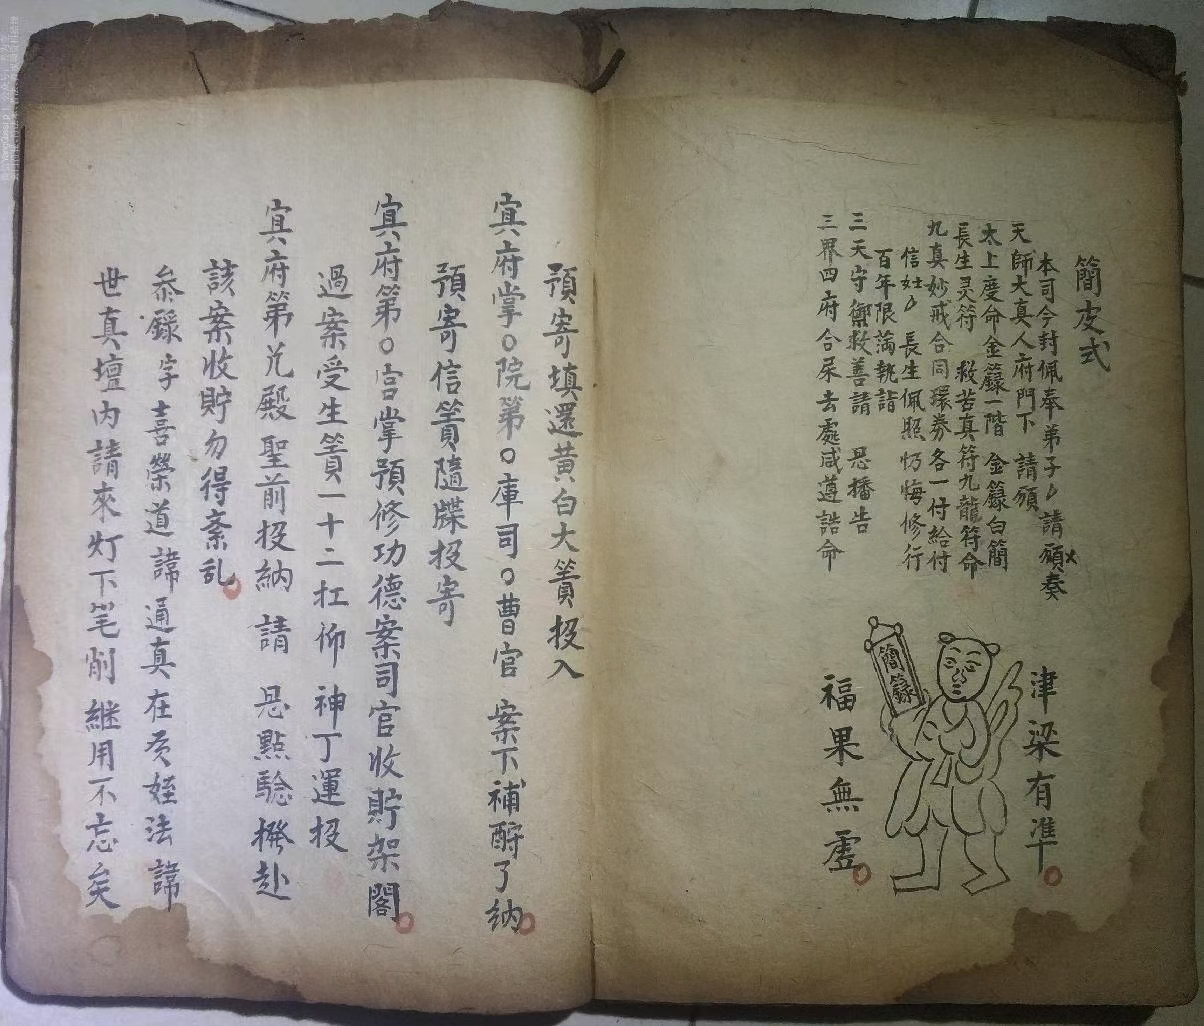 簡皮式
本司今封佩奉弟子 請願奏
天師大真人府門下 請願
太上度命金籙一階 金籙白簡
長生灵符 救苦真符九龍符命
九真妙戒合同環券各一付給付
信 長生佩照仍悔修行
百年限滿執詣
三天守禦救善請 恩播告
三界四府合屎去處咸遵誥命
津梁有準
簡籙
福果無虛
預寄填還黄白大筫投入
冥府掌○院第○庫司○曹官 案下補酧了納
預寄信筫隨牒投寄
冥府第○宫掌預修功德案司官收貯架閣
過案受生筫一十二扛仰 神丁運投
冥府第 殿聖前投納 請 恩點驗撥赴
該案收貯勿得紊乱
叅籙字喜榮道諱通真在 姪法諱
世真壇内請來灯下笔削継用不忘矣